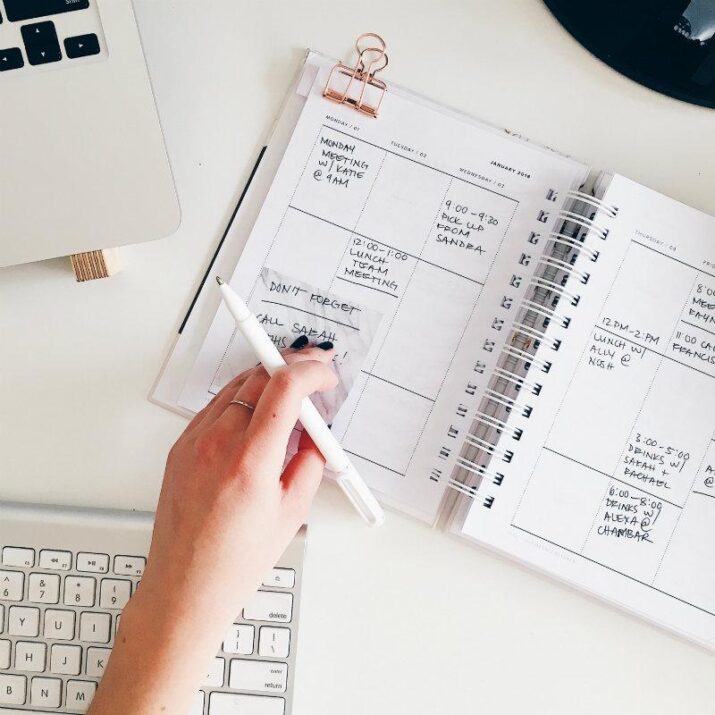 MONDAY / 01
TUESDAY / 02
WEDNESDAY / 03
JANUARY 2018
MONDAY
MEETING
W/ KATIE
@ 9AM
9:00 - 9:30
PICK UP
FROM
SANDRA
12:00-1:00
LUNCH
TEAM
MEETING
DON'T FORGET
CALL SARAH
THURSDAY
12PM-2PM
LUNCH W/
ALLY @
NOSH
3:00-5:00
DRINKS W/
SARAH +
RACHAEL
6:00-8:00
DRINKS W/
ALEXA @
CHAMBAR
8:00
MEE
11:00 CAL
FRANCIS
delete
enter
return
6
7
8
9
Y
U
I
O
H
J
K
L
B
N
M